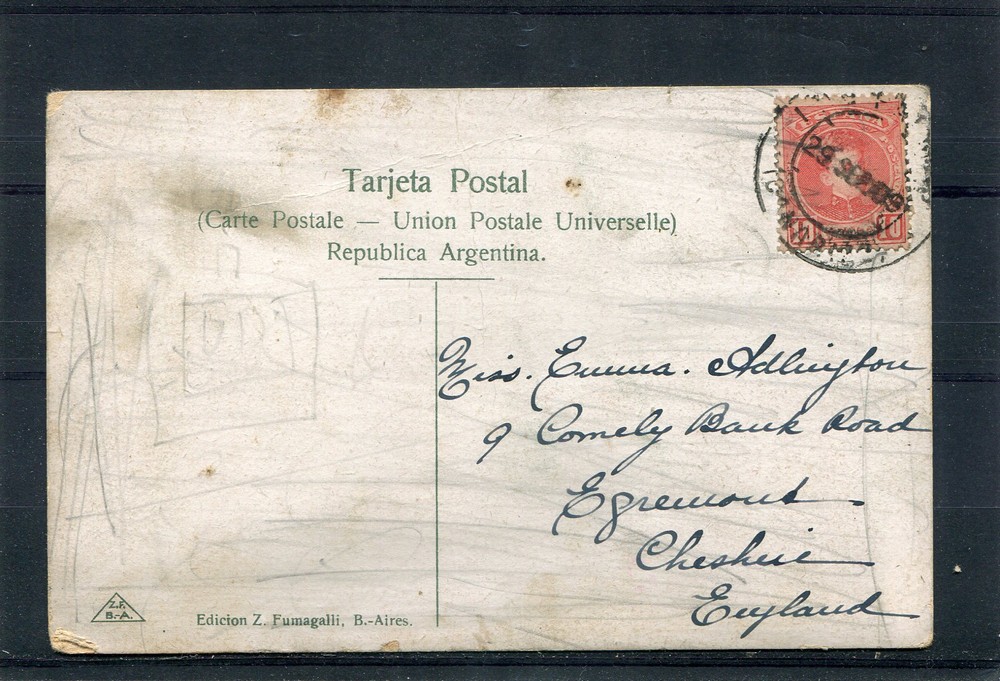 Tarjeta Postal
(Carte Postale — Union Postale Universelle)
Republica Argentina.
10
10
Miss. Emma. Adlington
9 Comely Bank Road
Egremont
Cheshire
England
Z.F.
B.-A.
Edicion Z. Fumagalli, B.-Aires.